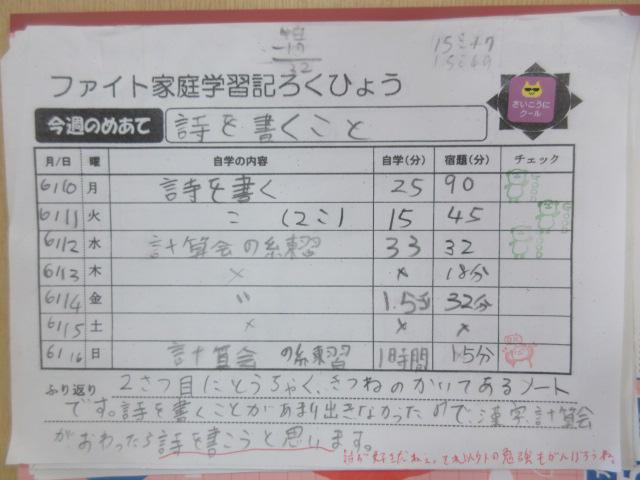 42
-10
32
15ミナワ
ファイト家庭学習記ろくひょう
さいこうに
クール
今週のめあて 詩を書くこと
月/日 曜 自学の内容 自学(分) 宿題(分) チェック
6/10 月 詩を書く 25 90
6/11 火 〃 (2こ) 15 45
6/12 水 計算会の練習 33 32
6/13 木 × × 18分
6/14 金 〃 1.5分 32分
6/15 土 × × ×
6/16 日 計算会の練習 1時間 15分
ふり返り 2さつ目にとうちゃく、きつねのかいてあるノート
です。詩を書くことがあまり出きなかったので、漢字計算会
がおわったら詩を書こうと思います。
詩が好きだねぇ。それ以外の勉強もがんばろうね。